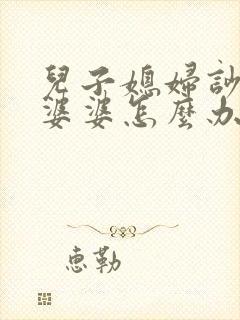 兒子媳婦
婆婆怎麼办
惠勒